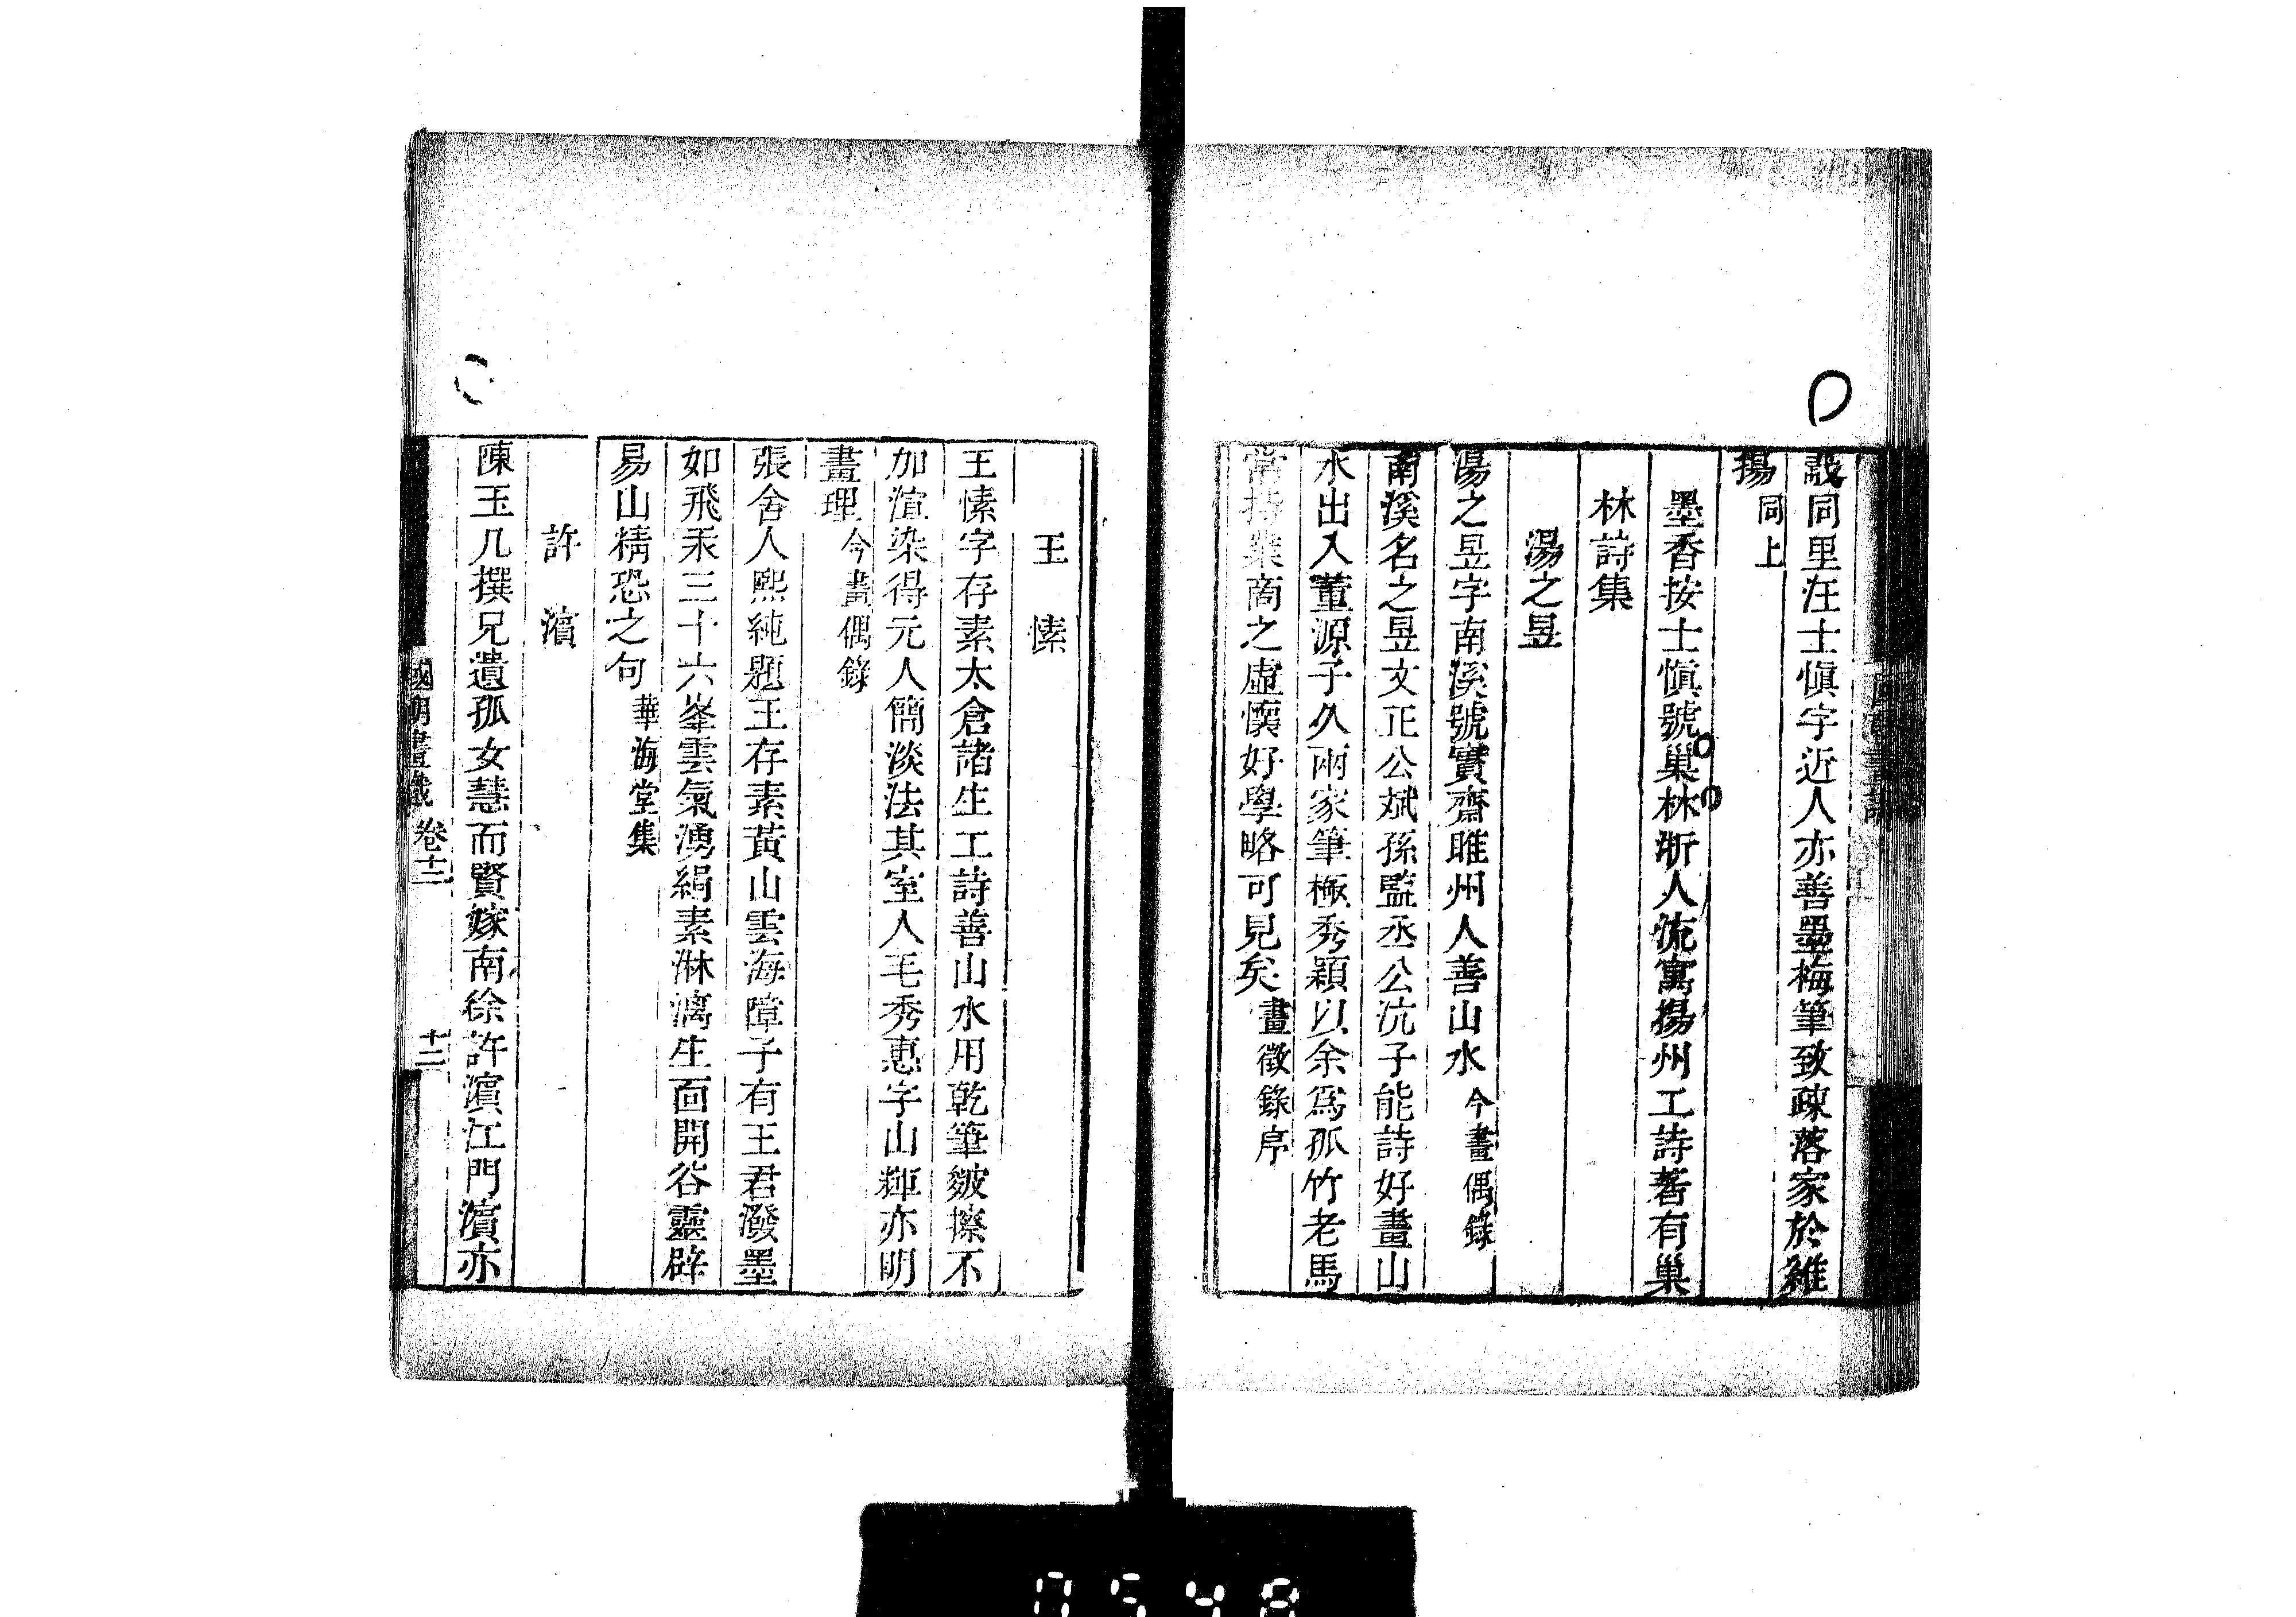 戩同里汪士愼字近人亦善墨梅筆致疎落家於維
揚同上
墨香按士愼號巢林浙人流寓揚州工詩著有巢
林詩集
湯之昱
湯之昱字南溪號實齋睢州人善山水今畫偶錄
南溪名之昱文正公斌孫監丞公沆子能詩好畫山
水出入董源子久兩家筆極秀穎以余爲孤竹老馬
常持業商之虛懷好學略可見矣畫徵錄序
王愫
王愫字存素太倉諸生工詩善山水用乾筆皴擦不
加渲染得元人簡淡法其室人毛秀惠字山輝亦明
畫理今畫偶錄
張舍人熙純題王存素黃山雲海障子有王君潑墨
如飛汞三十六峯雲氣湧絹素淋漓生面開谷靈辟
易山精恐之句華海堂集
許濱
陳玉几撰兄遺孤女慧而賢嫁南徐許濱江門濱亦
國朝畫識 卷十二 十二
0548